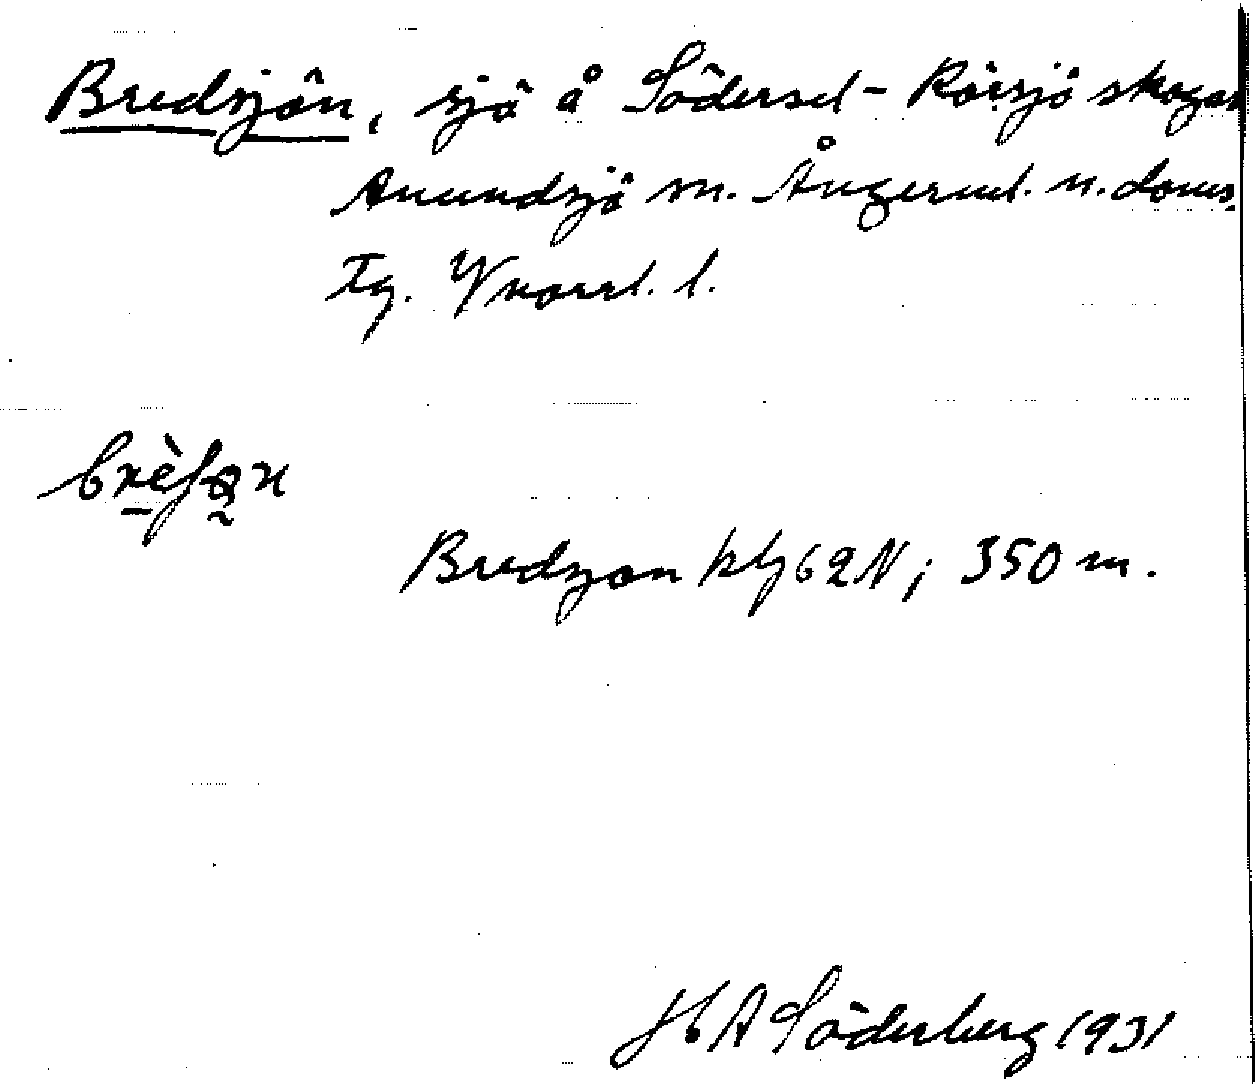 Bredsjön, sjö å Södersel - Rörsjö skogen
Anundsjö sn. Ångerml. n. doms.
Tg. Vnorrl. l.
Bredsjön 62N; 350 m.
H A Söderberg 1931